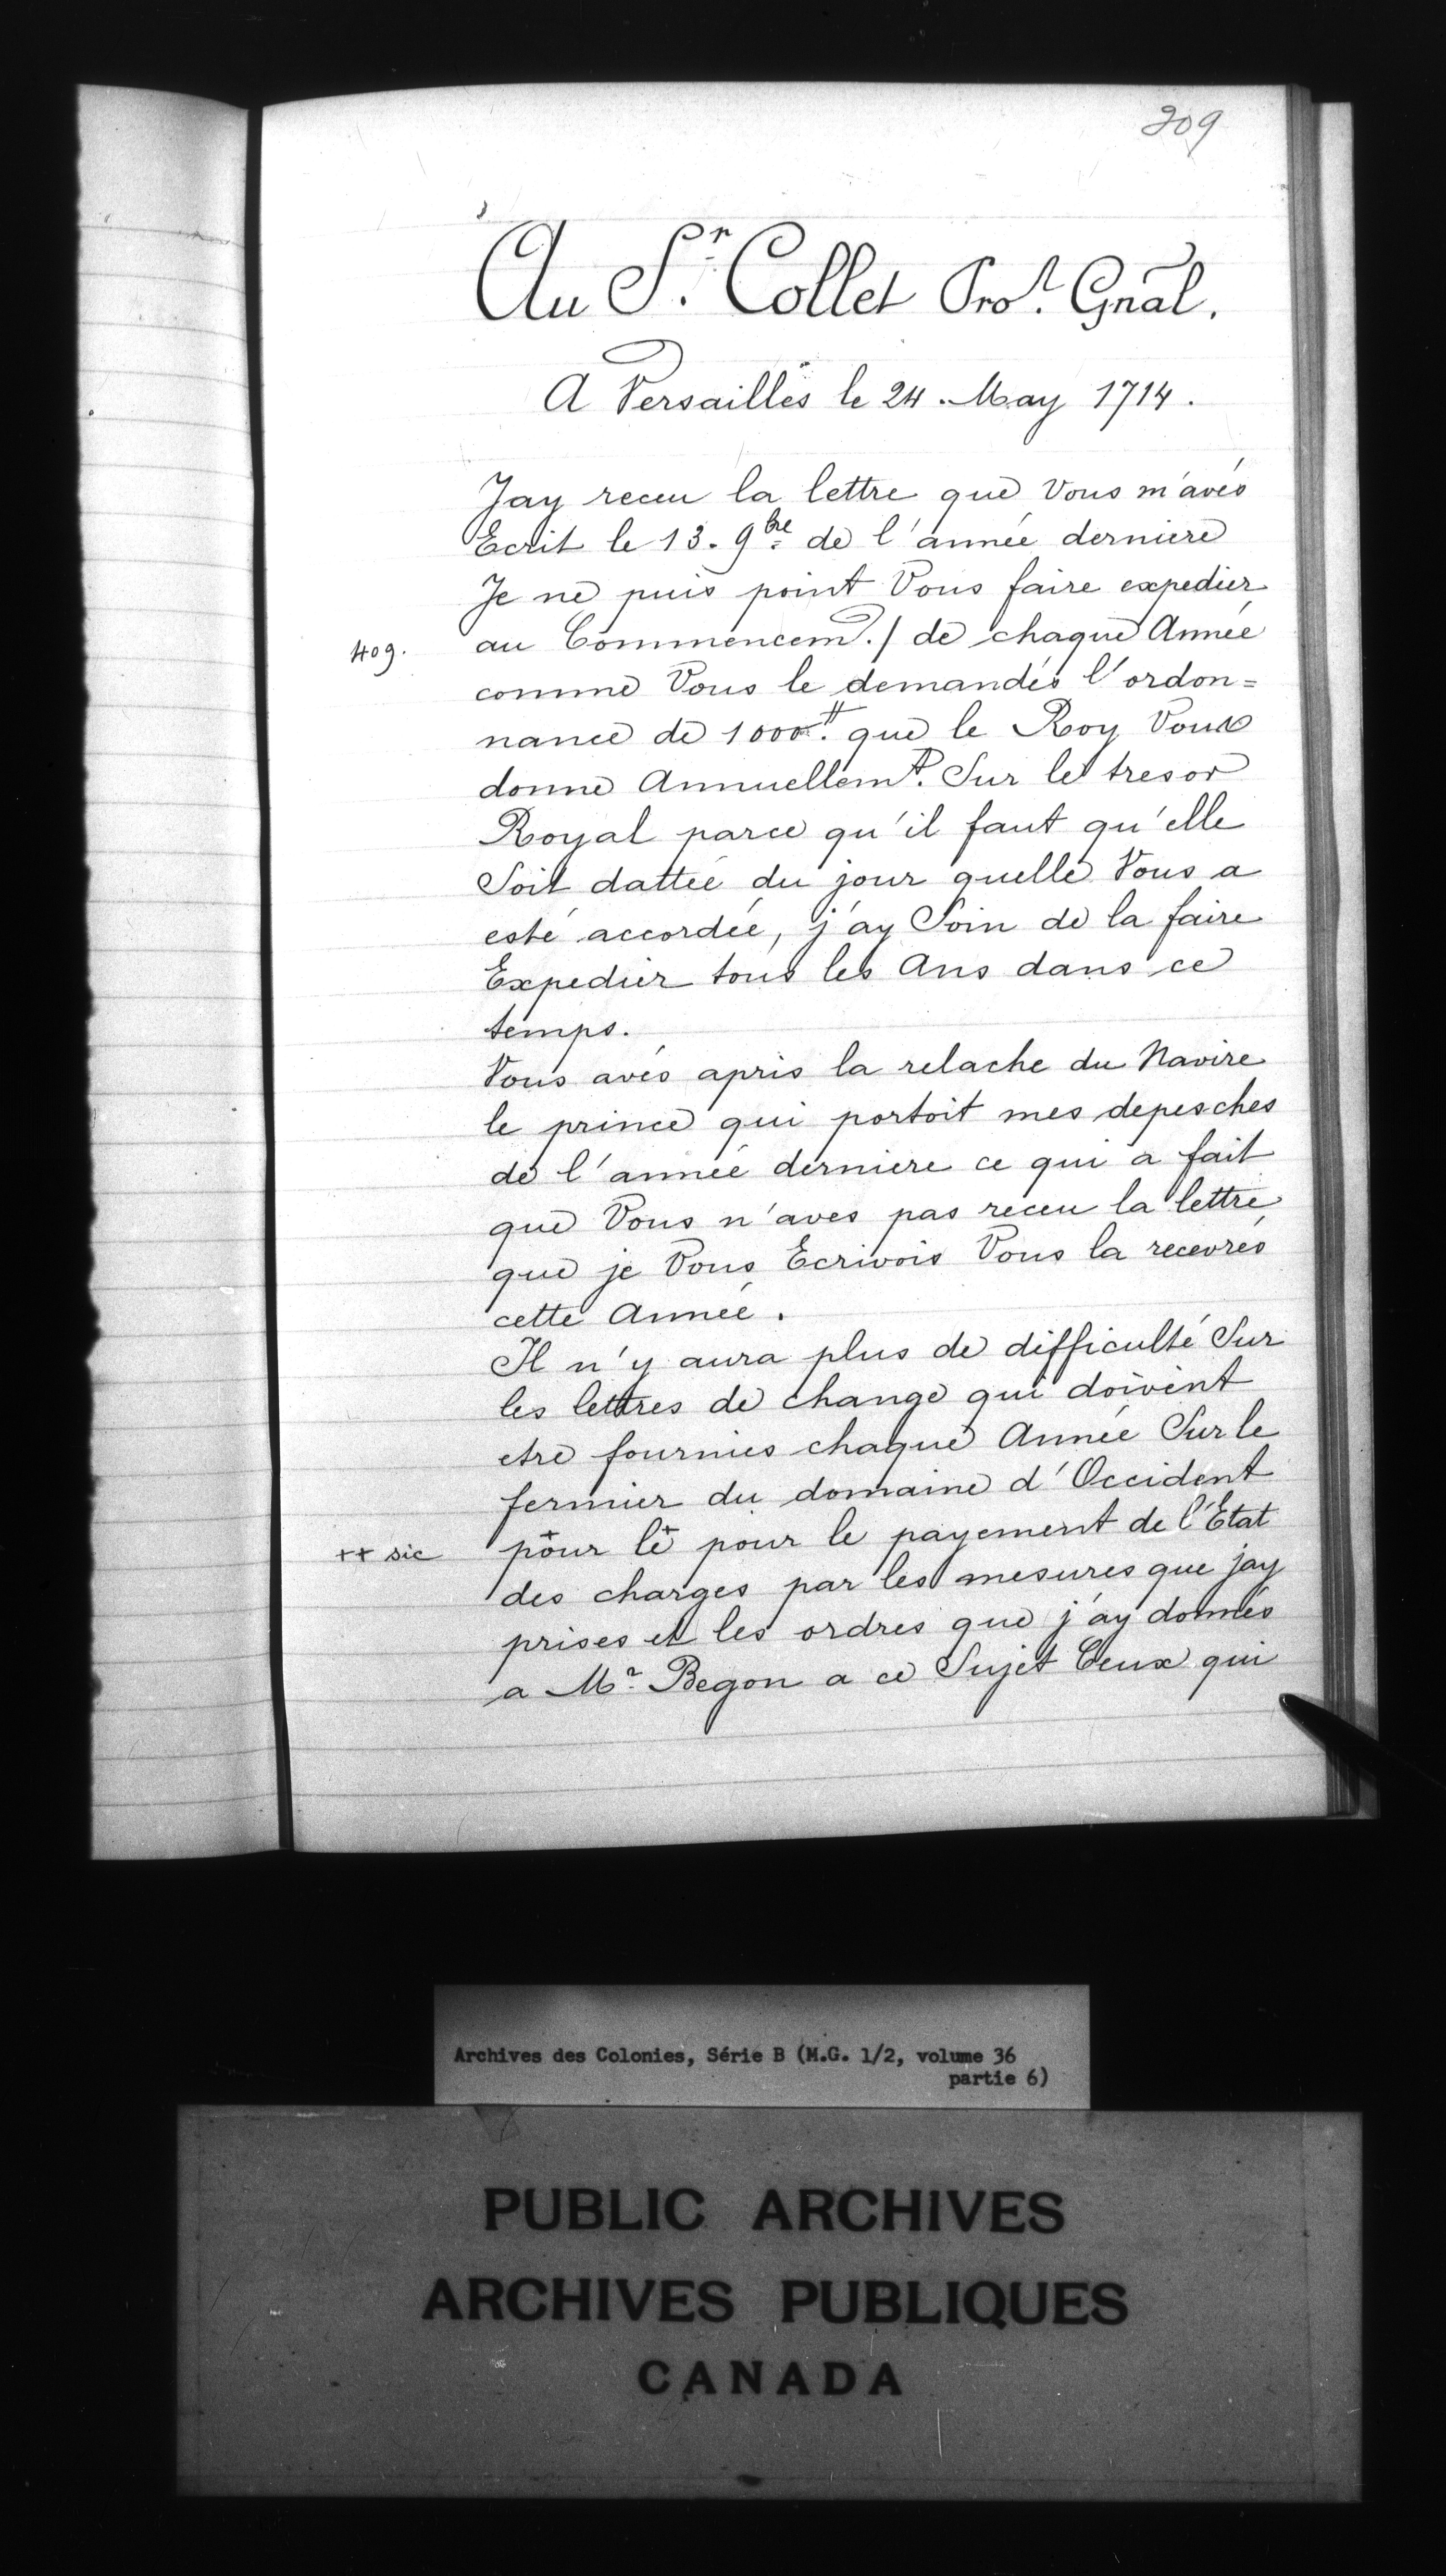 209
Au S.r Collet Pro.r Gnãl.
A Versailles le 24. May 1714.
Jay receu la lettre que Vous m'avés
Ecrit le 13. 9bre de l'année derniere
Je ne puis point Vous faire expedier
409. au Commencem.t/ de chaque Année
comme Vous le demandés l'ordon=
nance de 1000.# que le Roy Vous
donne Annuellem.t Sur le tresor
Royal parce qu'il faut qu'elle
Soit dattée du jour quelle Vous a
esté accordée, j'ay Soin de la faire
Expedier tous les Ans dans ce
temps.
Vous avés apris la relache du Navire
le prince qui portoit mes depesches
de l'année derniere ce qui a fait
que Vous n'aves pas receu la lettre
que je Vous Ecrivois Vous la recevrés
cette Année.
Il n'y aura plus de difficulté Sur
les lettres de change qui doivent
etre fournies chaque Année Sur le
fermier du domaine d'Occident
++ sic +pour le+ pour le payement de l'Etat
des charges par les mesures que jay
prises et les ordres que j'ay donnés
a Mr. Begon a ce Sujet Ceux qui
Archives des Colonies, Série B (M.G. 1/2, volume 36
partie 6)
PUBLIC ARCHIVES
ARCHIVES PUBLIQUES
CANADA